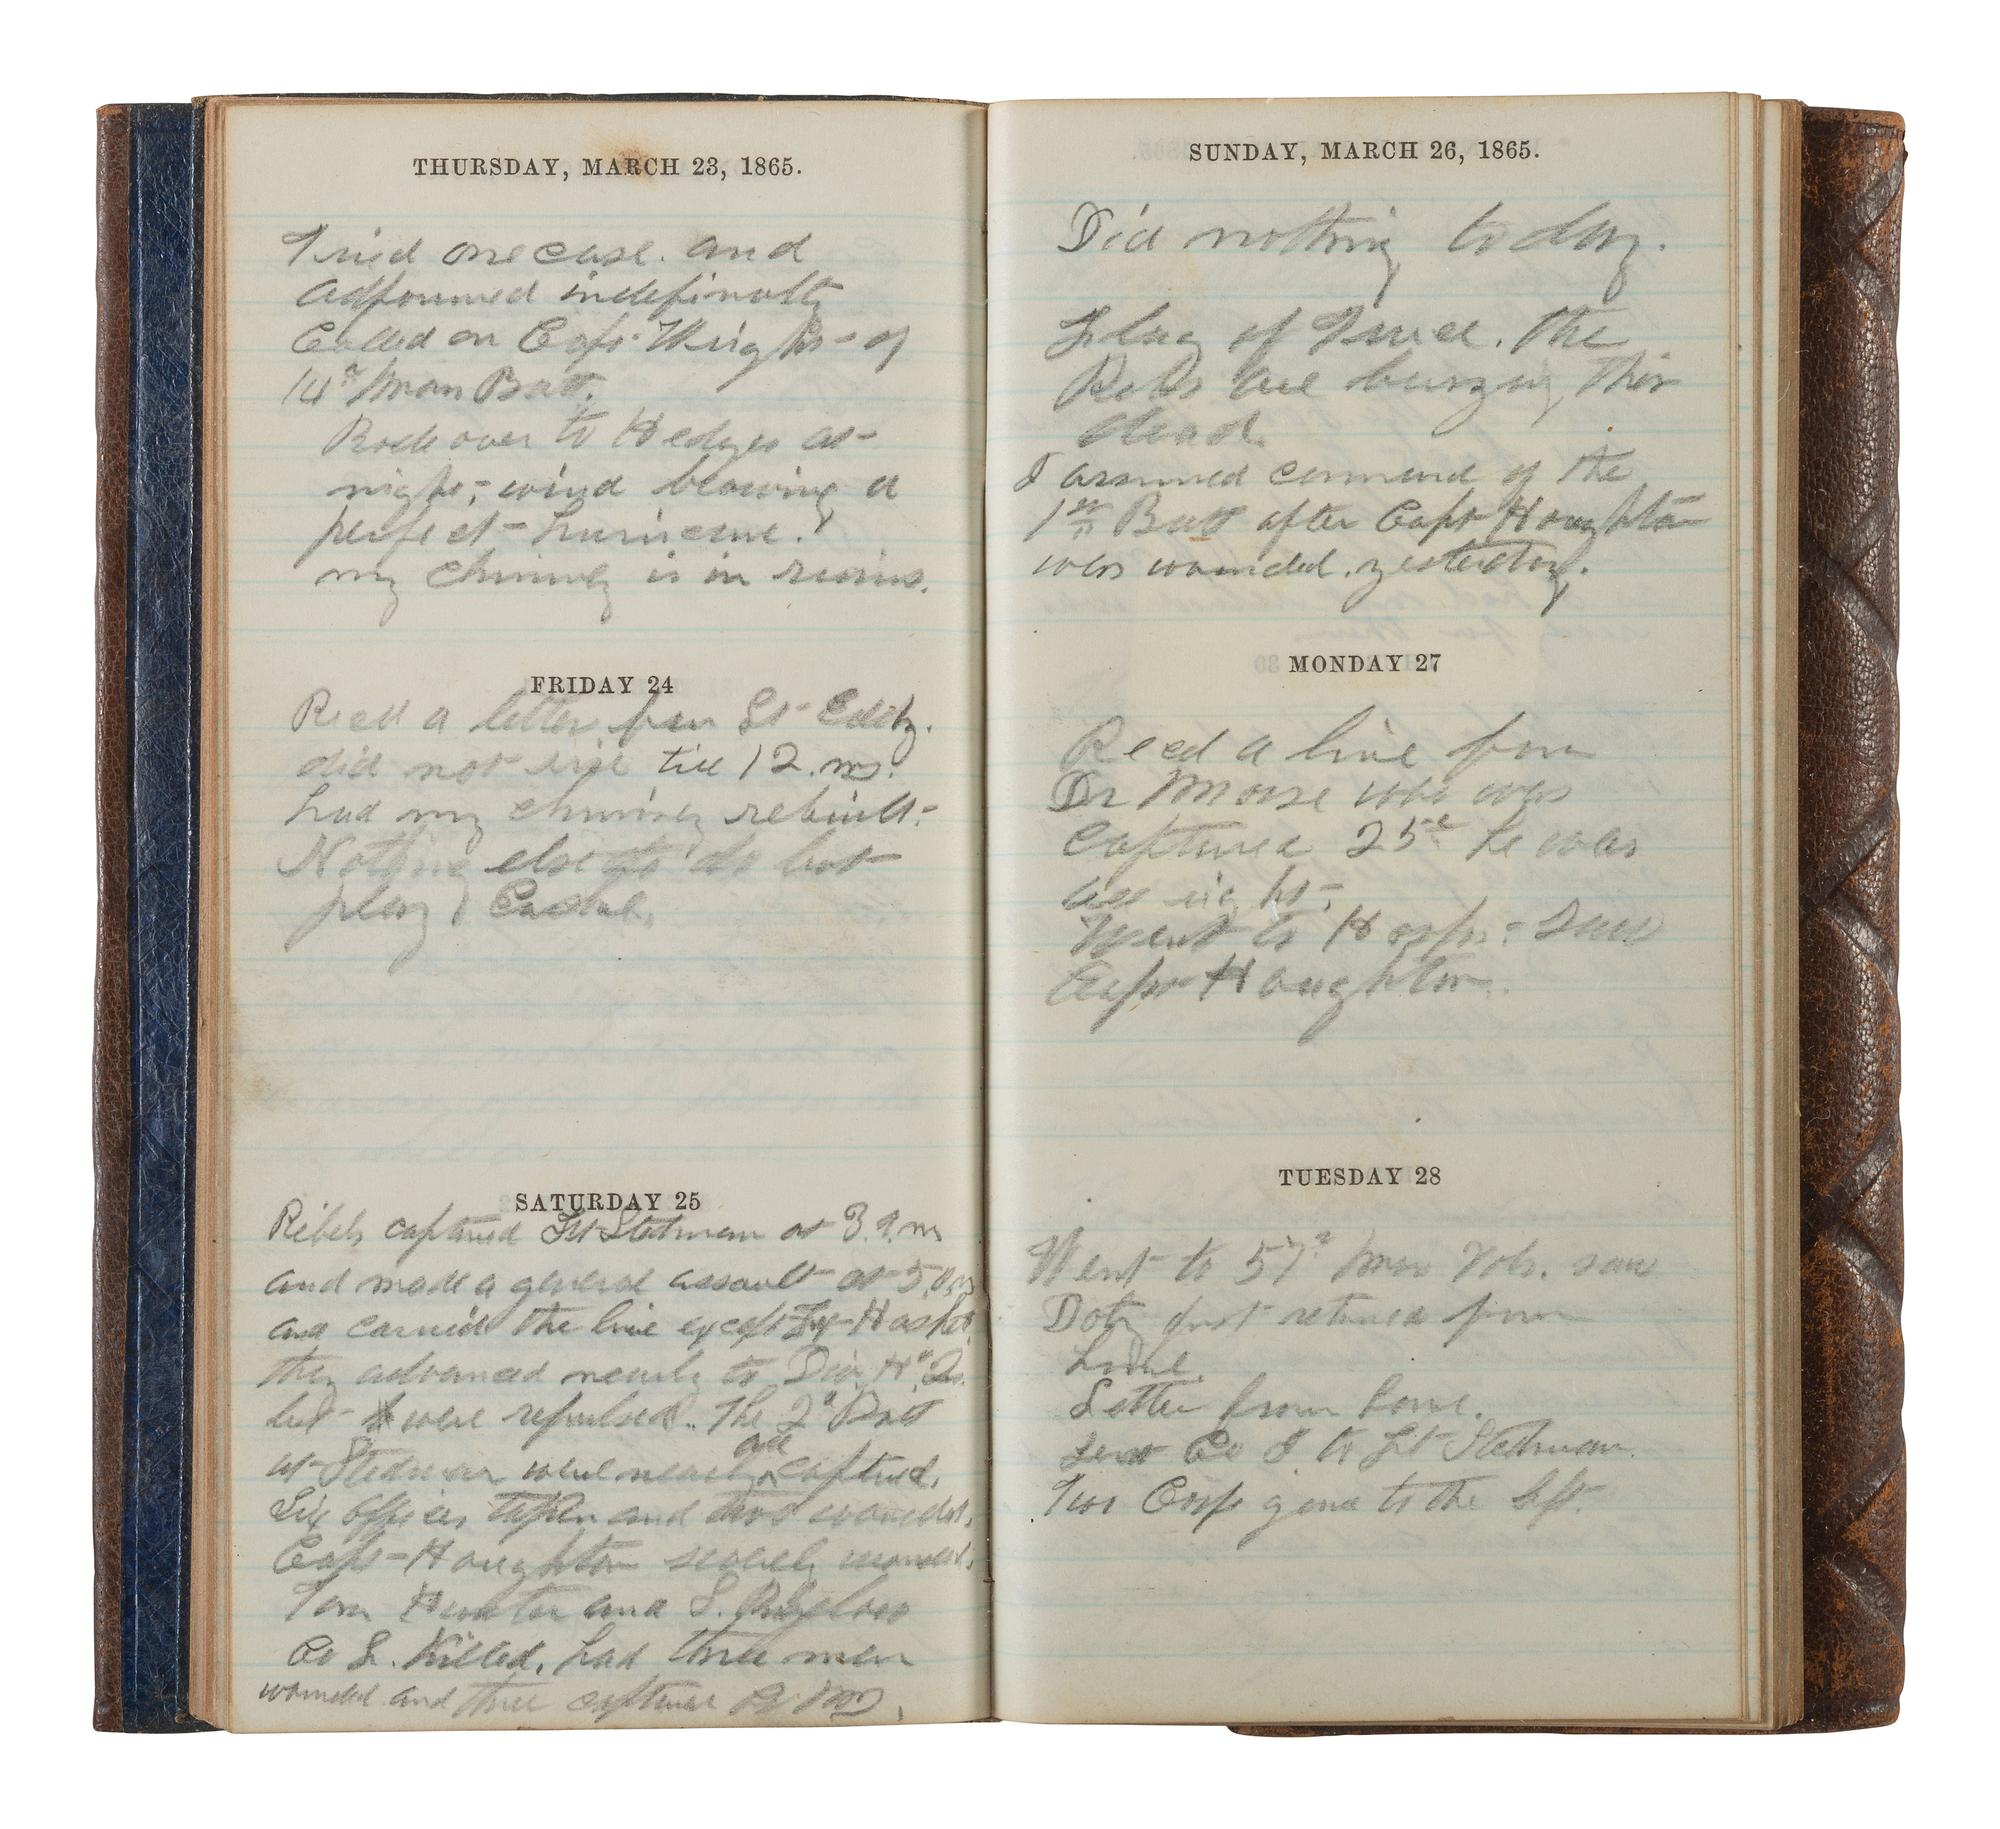 THURSDAY, MARCH 23, 1865.
Tried one case. and
adjourned indefinatly
Called on Capt. Wright of
14th Mass Batt.
Rode over to Hedges at
night, wind blowing a
perfect hurricane.
my chimney is in ruins.
FRIDAY 24
Recd a letter from Lt Eddy.
did not rise till 12. m.
had my chimney rebuilt.
Nothing else to do but
play
SATURDAY 25
Rebels captured Ft Stedman at 3 a.m
and made a general assault at 5 a.m
and carried the line except Ft Haskel
they advanced nearly to Div. Hd Qs.
but were repulsed. The 2d Batt
at Stedman were nearly all captured.
Six officers taken and two wounded.
Capt Houghton severely wounded.
Tom Hunter and S. Bigelow
Co L. Killed, had three men
wounded and three captured Co M.
SUNDAY, MARCH 26, 1865.
Did nothing to day.
Flag of Truce. The
Rebs are burying thir
dead.
I assumed command of the
1st Batt after Capt Houghton
was wounded. yesterday.
MONDAY 27
Recd a line from
Dr Morse who was
captured 25th he was
all right.
Went to Hosp. saw
Capt Houghton.
TUESDAY 28
Went to 57th Mass Vols. saw
Doty just returned from
home.
Letter from home.
sent Co I to Ft Stedman.
Two Corps gone to the left.